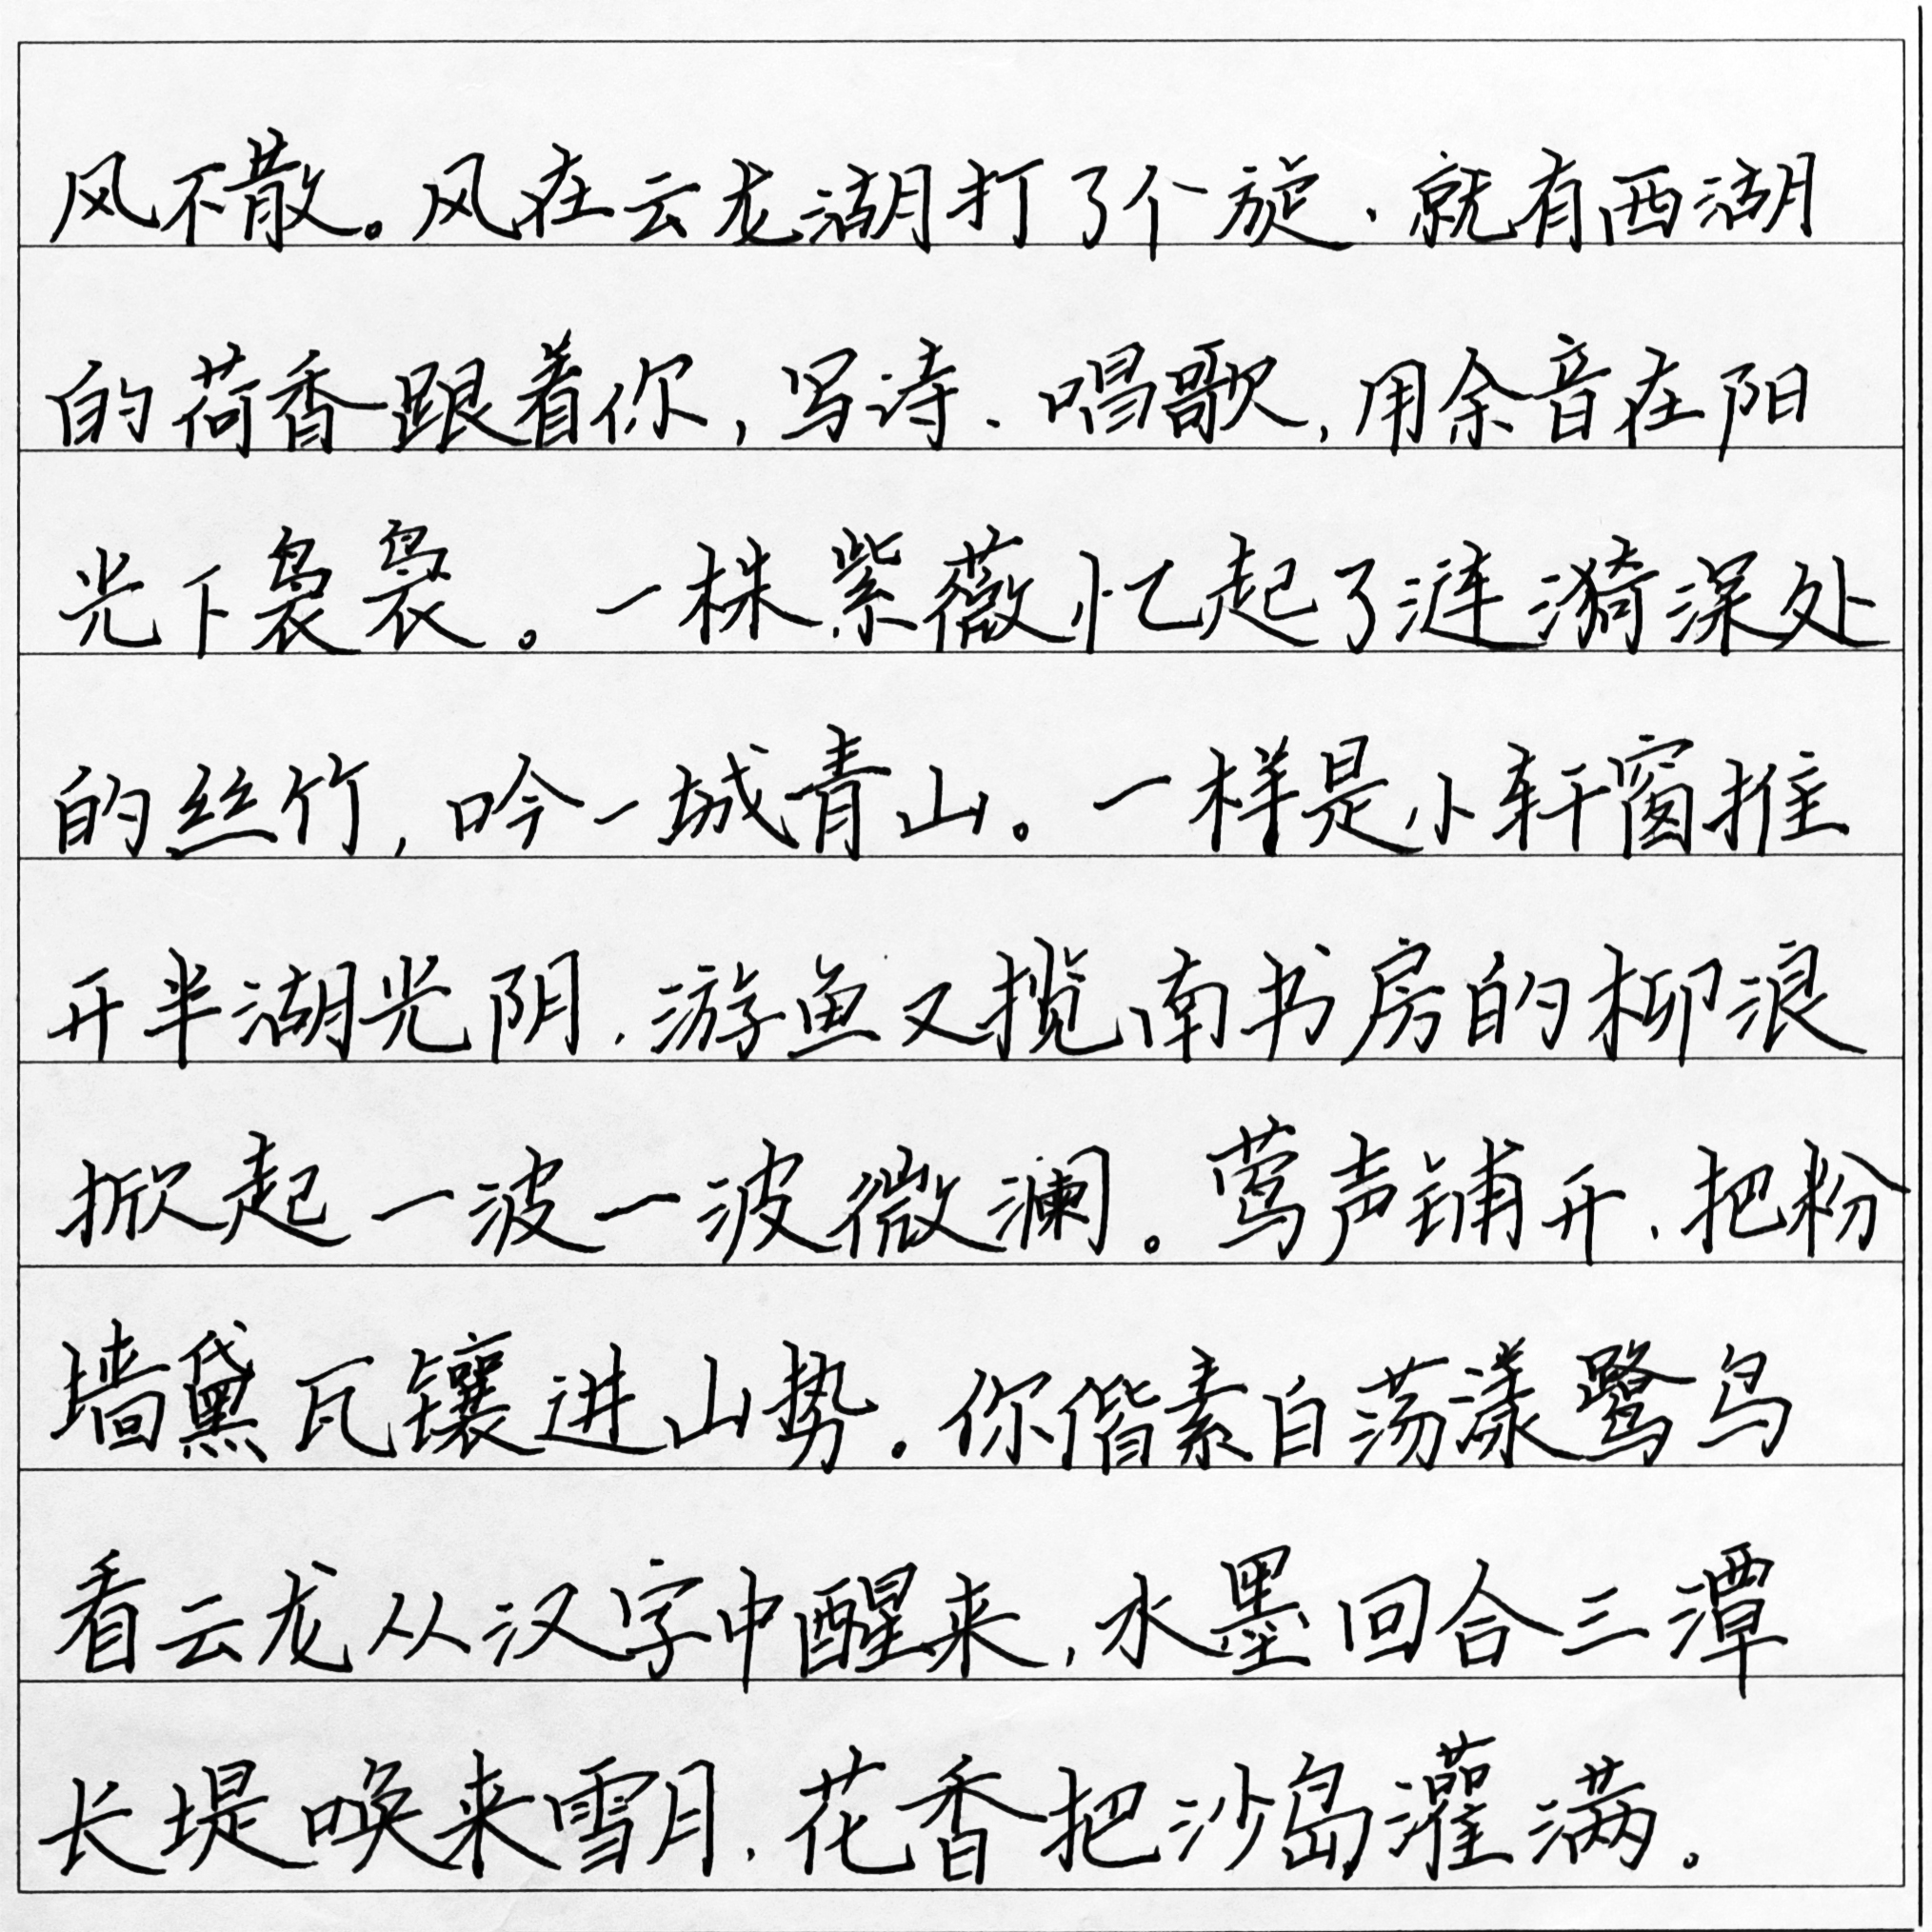 风不散。风在云龙湖打了个旋，就有西湖
的荷香跟着你，写诗、唱歌，用余音在阳
光下袅袅。一株紫薇忆起了涟漪深处
的丝竹，吟一城青山。一样是小轩窗推
开半湖光阴，游鱼又揽南书房的柳浪
掀起一波一波微澜。莺声铺开，把粉
墙黛瓦镶进山势。你偕素白荡漾鹭鸟
看云龙从汉字中醒来，水墨回合三潭
长堤唤来雪月，花香把沙岛灌满。